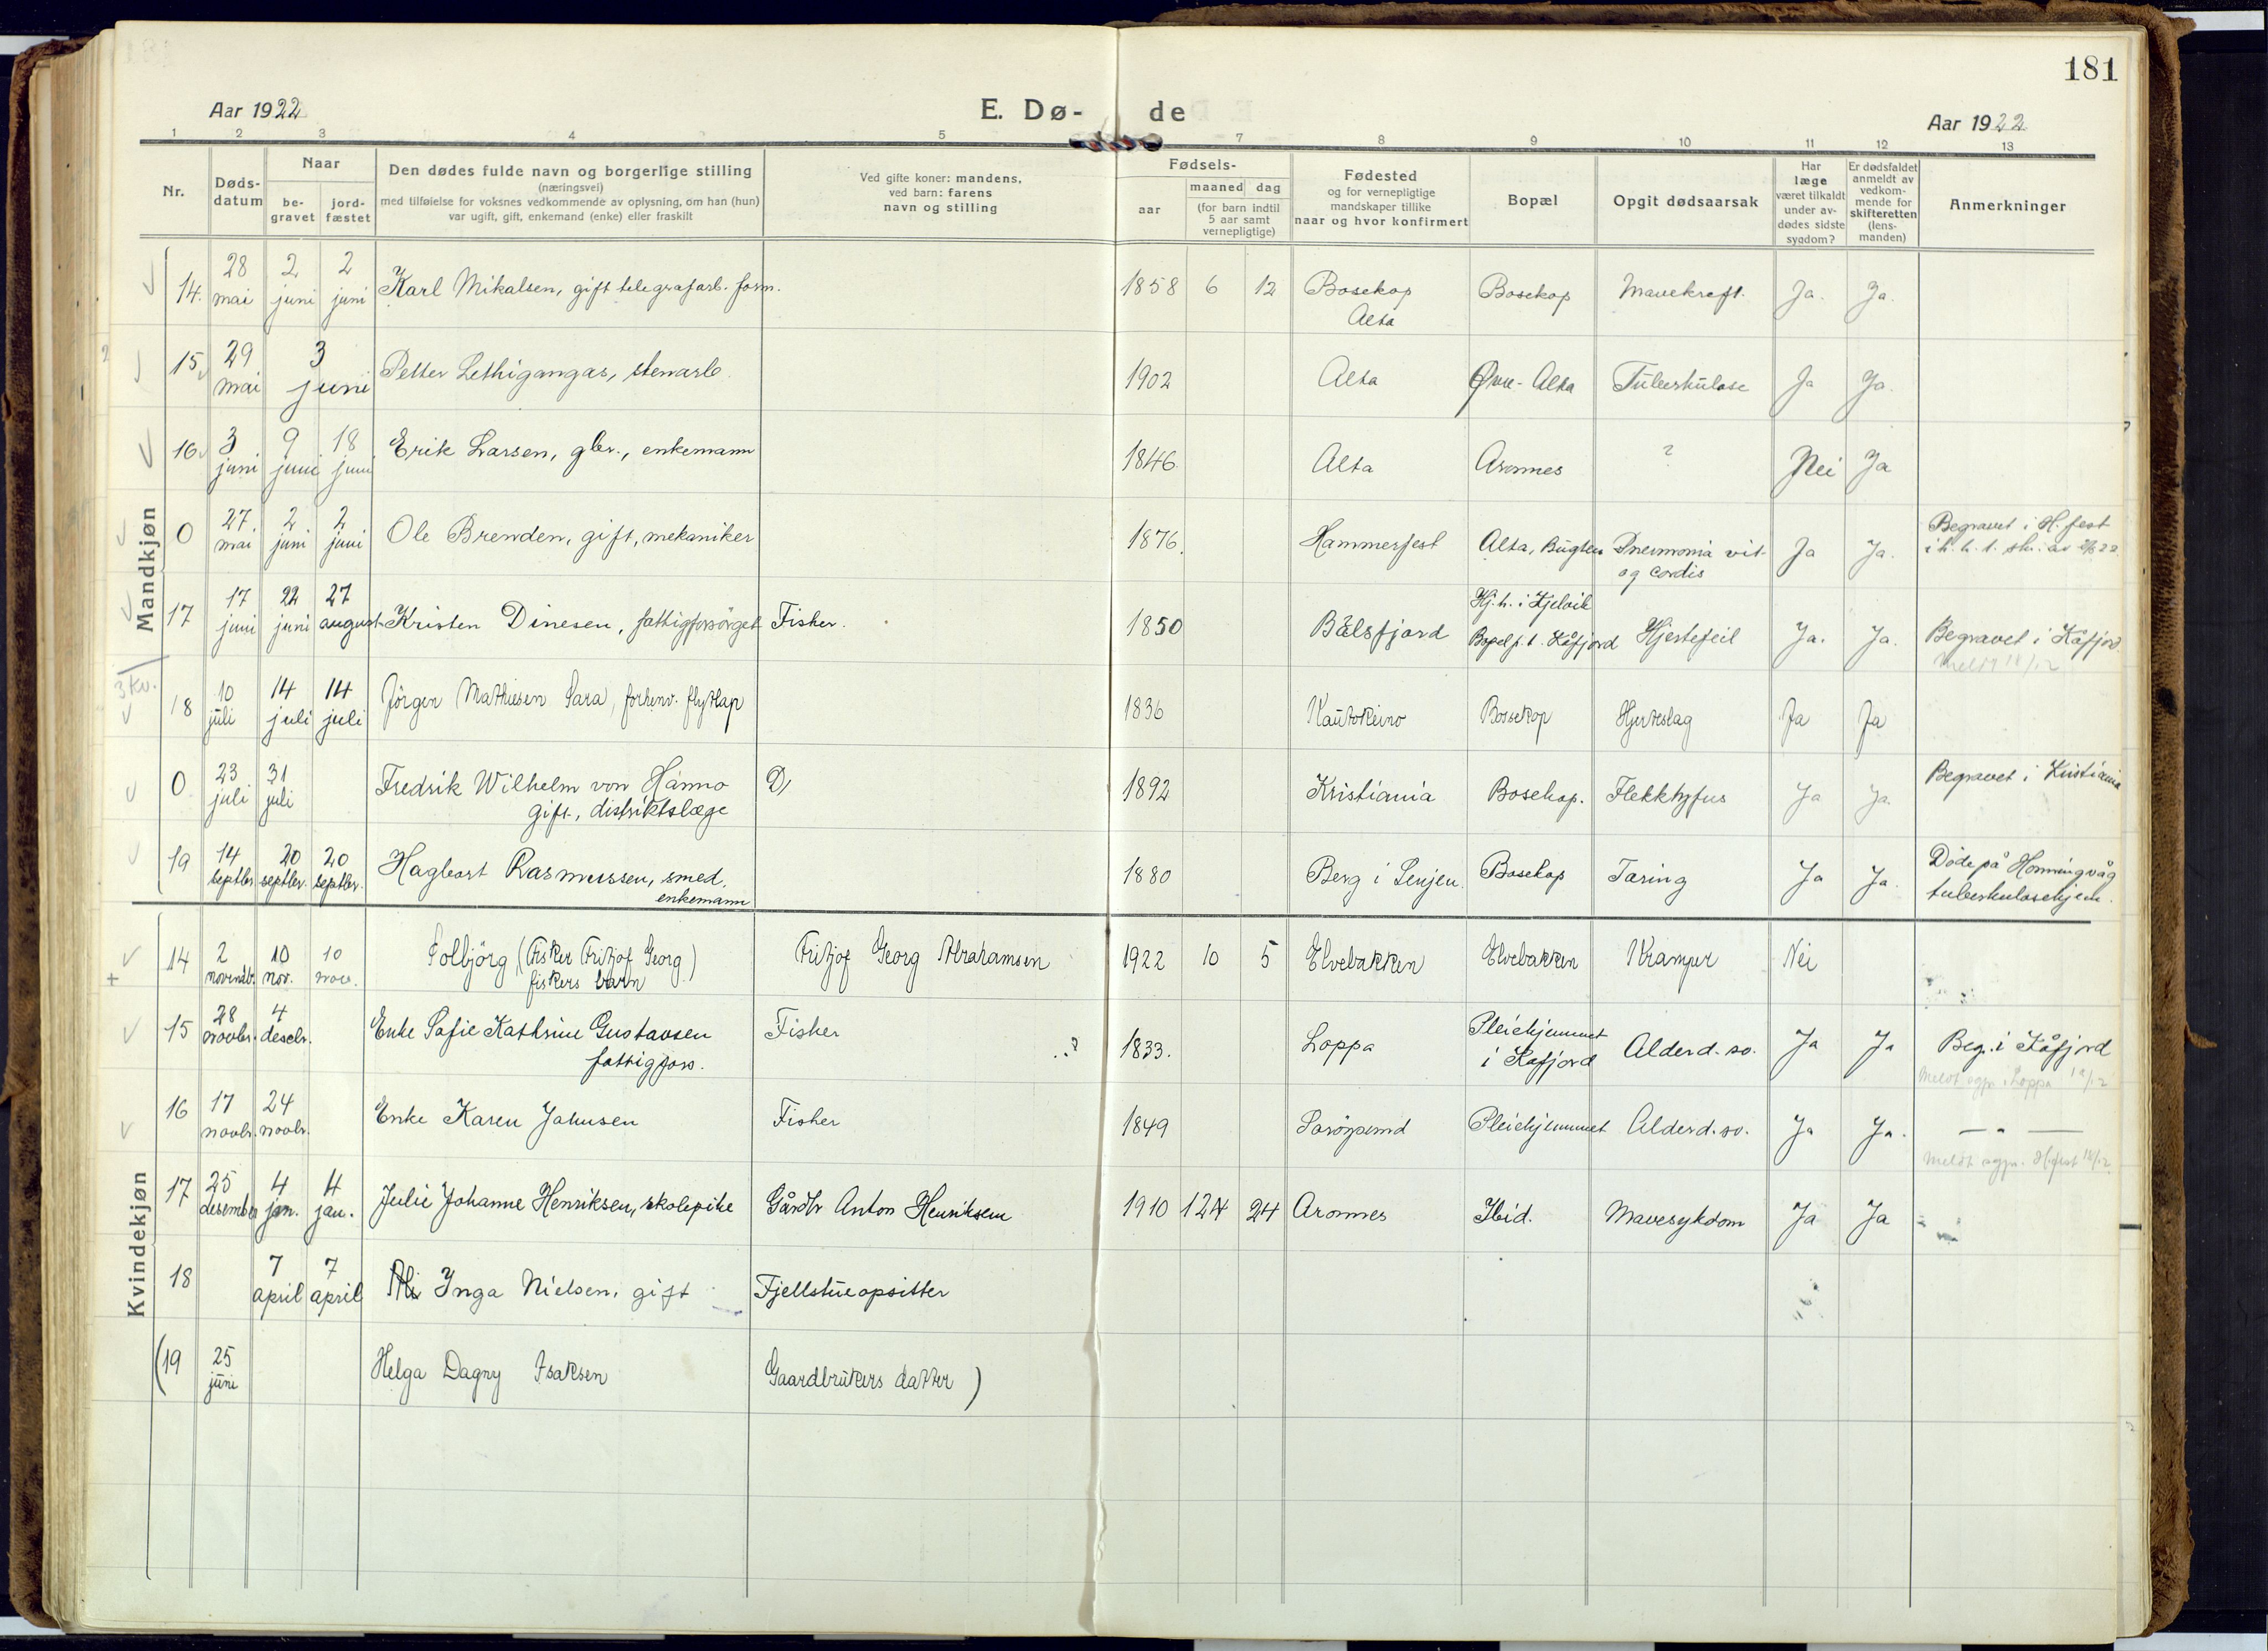 181
Aar 1922 E. Dø- de Aar 1922
1 2 3 4 5 7 8 9 10 11 12 13
Nr.
Døds-
datum
Naar
be-
gravet
jord-
fæstet
Den dødes fulde navn og borgerlige stilling
(næringsvei)
med tilføielse for voksnes vedkommende av oplysning, om han (hun)
var ugift, gift, enkemand (enke) eller fraskilt
Ved gifte koner: mandens,
ved barn: farens
navn og stilling
Fødsels-
aar
maaned dag
(for barn indtil
5 aar samt
vernepligtige)
Fødested
og for vernepligtige
mandskaper tillike
naar og hvor konfirmert
Bopæl
Opgit dødsaarsak
Har
læge
været tilkaldt
under av-
dødes sidste
sygdom?
Er dødsfaldet
anmeldt av
vedkom-
mende for
skifteretten
(lens-
manden)
Anmerkninger
Mandkjøn
14. 28 mai 2 juni 2 juni Karl Mikalsen, gift telegrafarb. form. 1858 6 12 Bosekop Alta Bosekop Mavekreft. Ja. Ja.
15 29 mai 3 juni Petter Lethigangas, stenarb. 1902 Alta Øvre-Alta Tuberkulose Ja Ja.
16 3 juni 9 juni 18 juni Erik Larsen, gbr., enkemann 1846. Alta Aronnes ? Nei Ja
0 27. mai 2. juni 2. juni Ole Brenden, gift, mekaniker 1876. Hammerfest Alta, Bugten Pneumonia vit og cordis Ja Ja. Begravet i H.fest
17 17 juni 22 juni 27 august Kristen Dinesen, fattigforsörget Fisker. 1850 Bålsfjord Kj.h. i Kjelvik
Bopel p.t. Kåfjord Hjertefeil Ja. Ja. Begravet i Kåfjord.
3 Kv.
18 10 juli 14 juli 14 juli Jörgen Mathiesen Sara, forhenv. flytlap 1836 Kautokeino Bossekop Hjerteslag Ja Ja
0 23 juli 31 juli Fredrik Wilhelm von Hanno
gift., distriktslæge 1892 Kristiania Bosekop. Flekktyfus Ja Ja. Begravet i Kristiania
19 14 septbr. 20 septbr. 20 septbr. Hagbart Rasmussen, smed,
enkemann 1880 Berg i Senjen. Bosekop Tæring Ja Ja. Döde på Honningvåg
tuberkulosehjem.
Kvindekjøn
14 2 novembr. 10 nov. 10 nov. Solbjörg (Fisker Fritjof Georg)
fiskers barn Fritjof Georg Abrahamsen 1922 10 5 Elvebakken Elvebakken Kramper Nei
15 28 novbr. 4 desebr. Enke Sofie Kathrine Gustavsen
fattigfors. Fisker ..? 1833. Loppa Pleiehjemmet
i Kåfjord Alderd. sv. Ja Ja Beg. i Kåfjord
16 17 novbr. 24 novbr. Enke Karen Johnsen Fisker 1849 Sörøysund Pleiehjemmet Alderd. sv. Ja Ja. — " —
17 25 desember 4 jan. 4 jan. Julie Johanne Henriksen, skolepike Gårdbr Anton Henriksen 1910 12 24 Aronnes Ibid. Mavesykdom Ja Ja
18 7 april 7 april Inga Nielsen, gift Fjellstueopsitter
(19 25 juni Helga Dagny Isaksen Gaardbrukers datter )